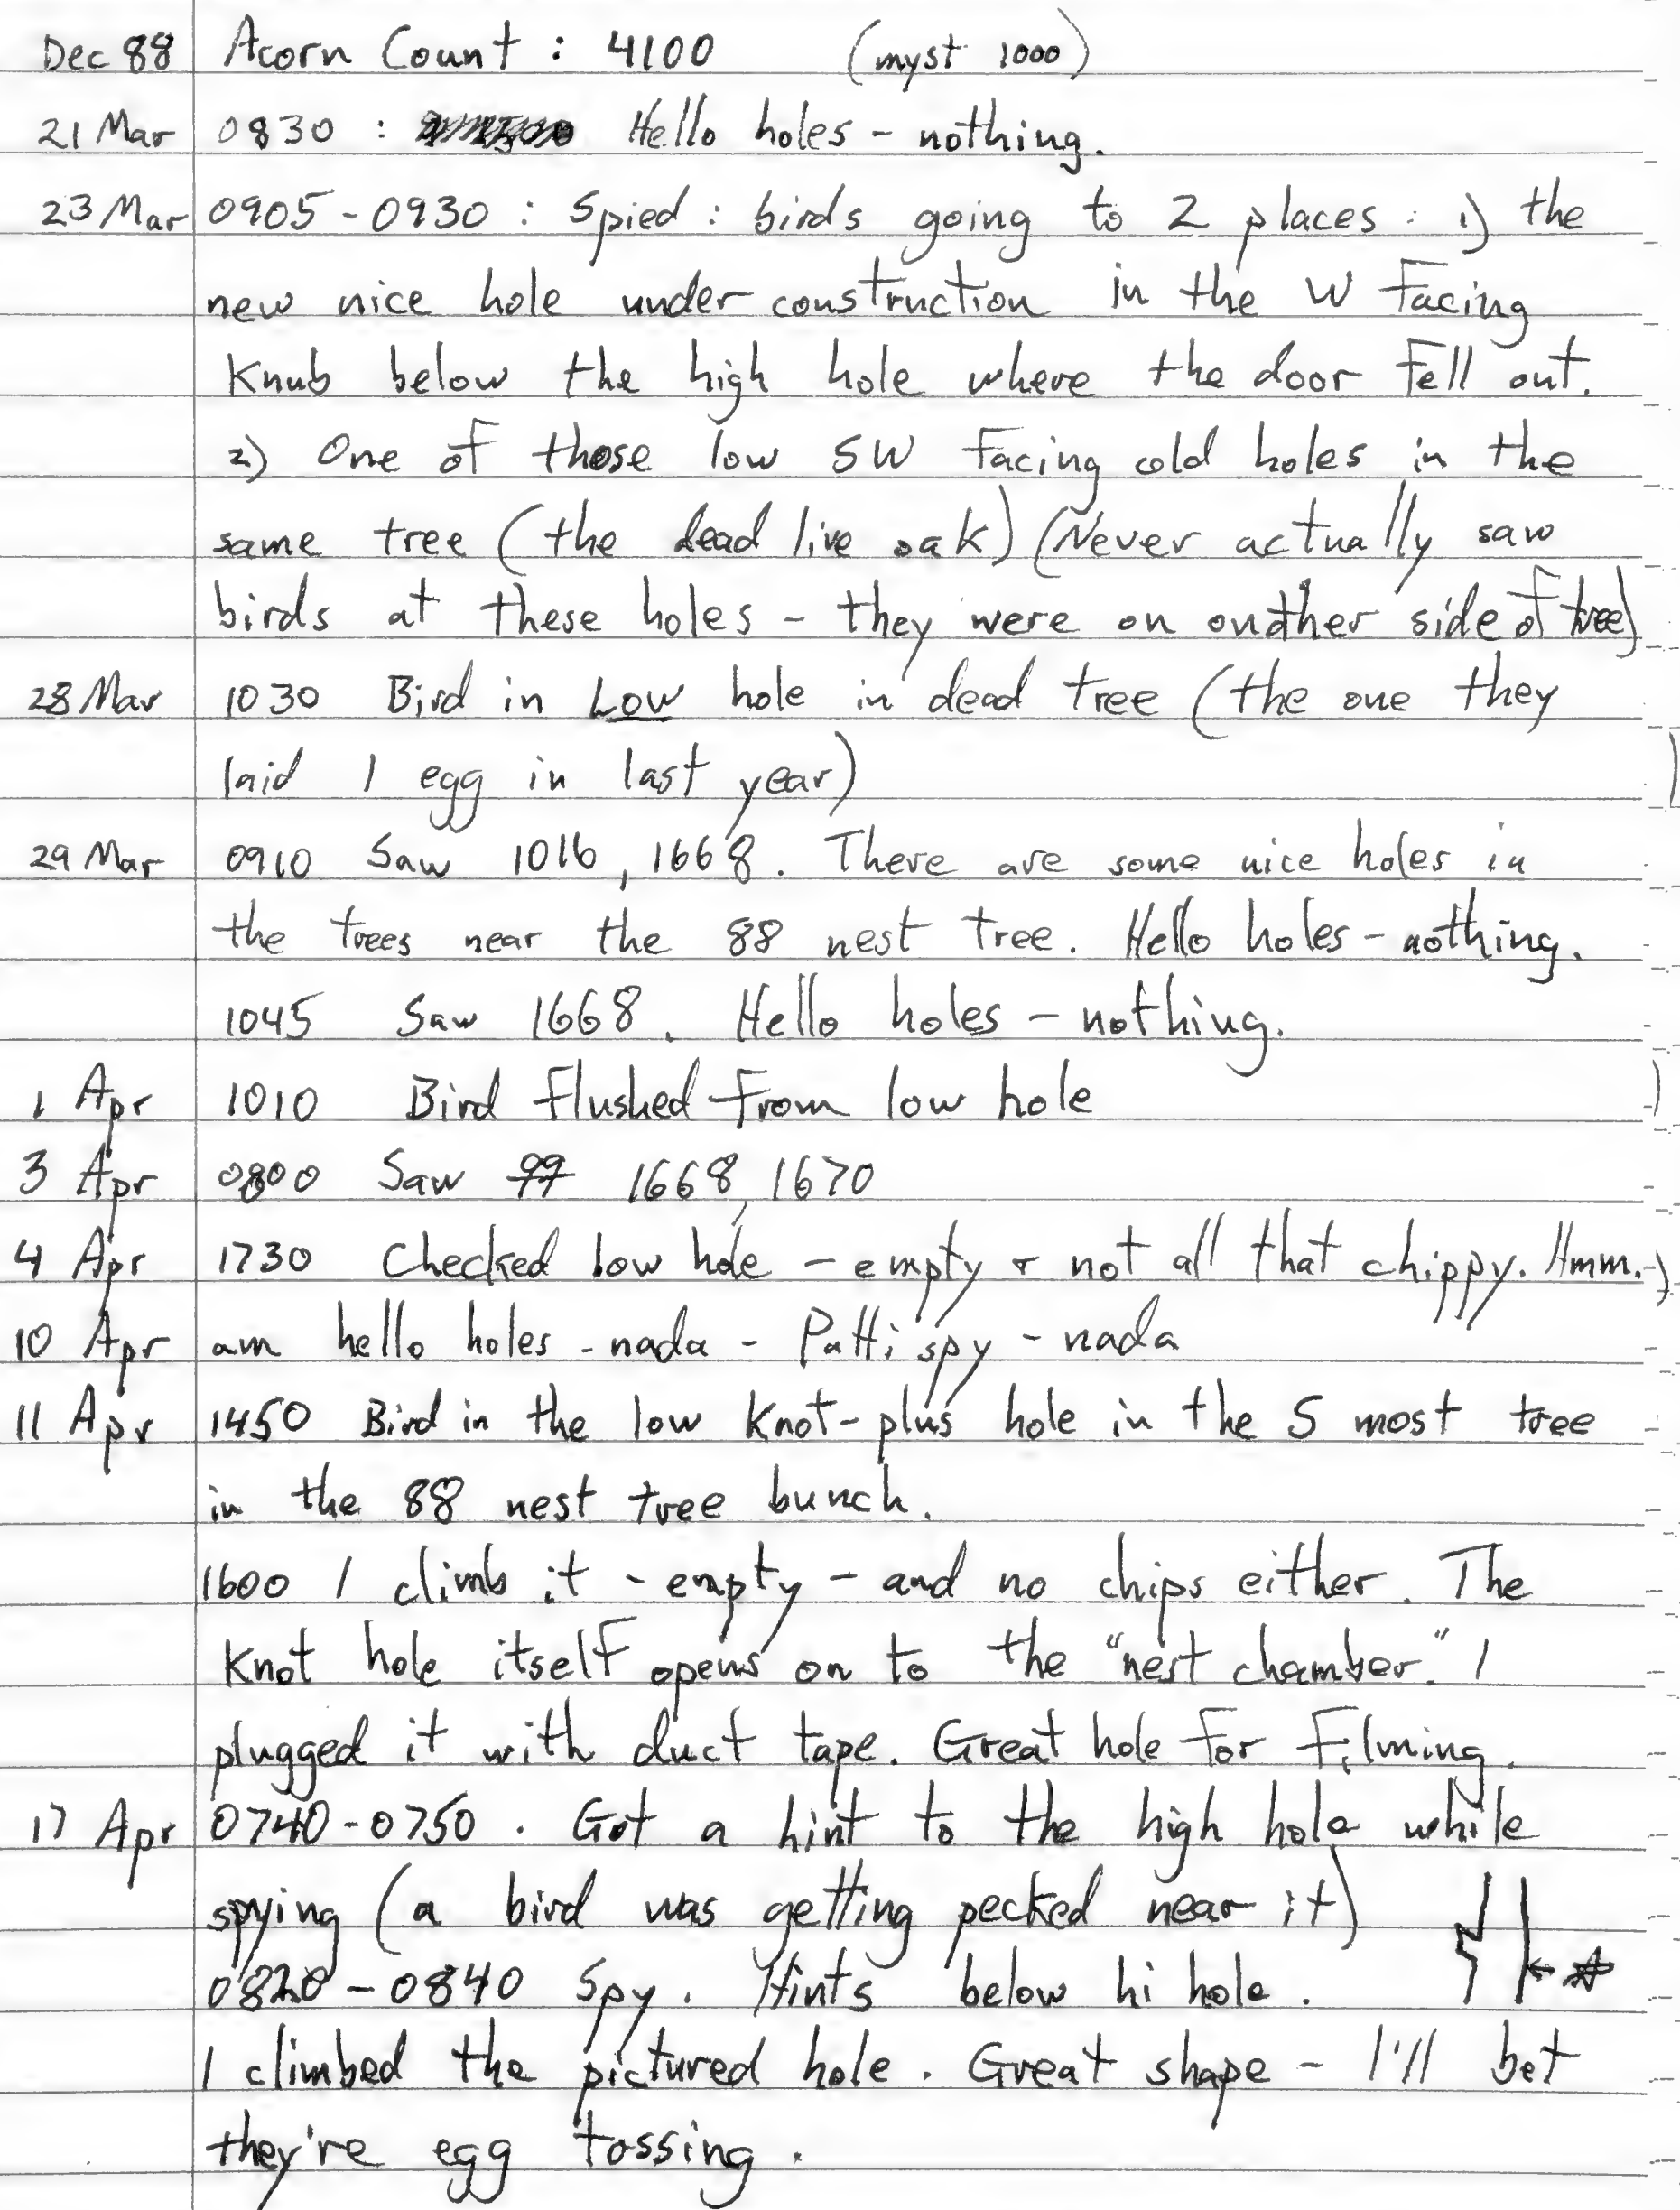 Dec 88 Acorn Count : 4100 (myst 1000)
21 Mar 0830 : Hello holes - nothing.
23 Mar 0905-0930 : Spied : birds going to 2 places : 1) the
new nice hole under construction in the W facing
Knub below the high hole where the door fell out.
2) One of those low SW facing cold holes in the
same tree (the dead live oak) (Never actually saw
birds at these holes - they were on onother side of tree)
28 Mar 1030 Bird in Low hole in dead tree (the one they
laid 1 egg in last year)
29 Mar 0910 Saw 1016, 1668. There are some nice holes in
the trees near the 88 nest tree. Hello holes - nothing.
1045 Saw 1668. Hello holes - nothing.
1 Apr 1010 Bird flushed from low hole
3 Apr 0800 Saw 1668, 1670
4 Apr 1730 Checked low hole - empty & not all that chippy. Hmm.
10 Apr am hello holes - nada - Patti spy - nada
11 Apr 1450 Bird in the low Knot-plus hole in the S most tree
in the 88 nest tree bunch.
1600 I climb it - empty - and no chips either. The
Knot hole itself opens on to the "nest chamber." I
plugged it with duct tape. Great hole for filming.
17 Apr 0740-0750. Got a hint to the high hole while
spying (a bird was getting pecked near it)
0820-0840 Spy. Hints below hi hole.
I climbed the pictured hole. Great shape - I'll bet
they're egg tossing.